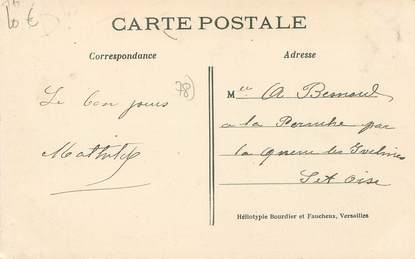 10 €
CARTE POSTALE
Correspondance
Adresse
78)
Le bon jours
Mathilde
Mlle A Bernard
a la Perruche par
la queue les Yvelines
S et Oise
Héliotypie Bourdier et Faucheux, Versailles